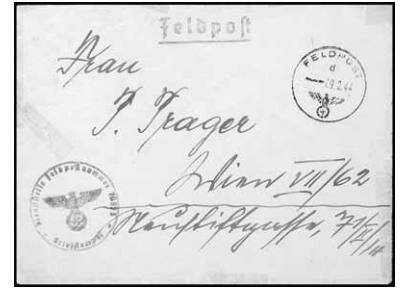 Feldpost
Frau
FELDPOST
d
P. Prager
Wien VII/62
Neustiftgasse, 71
Dienststelle Feldpostnummer
Briefstempel